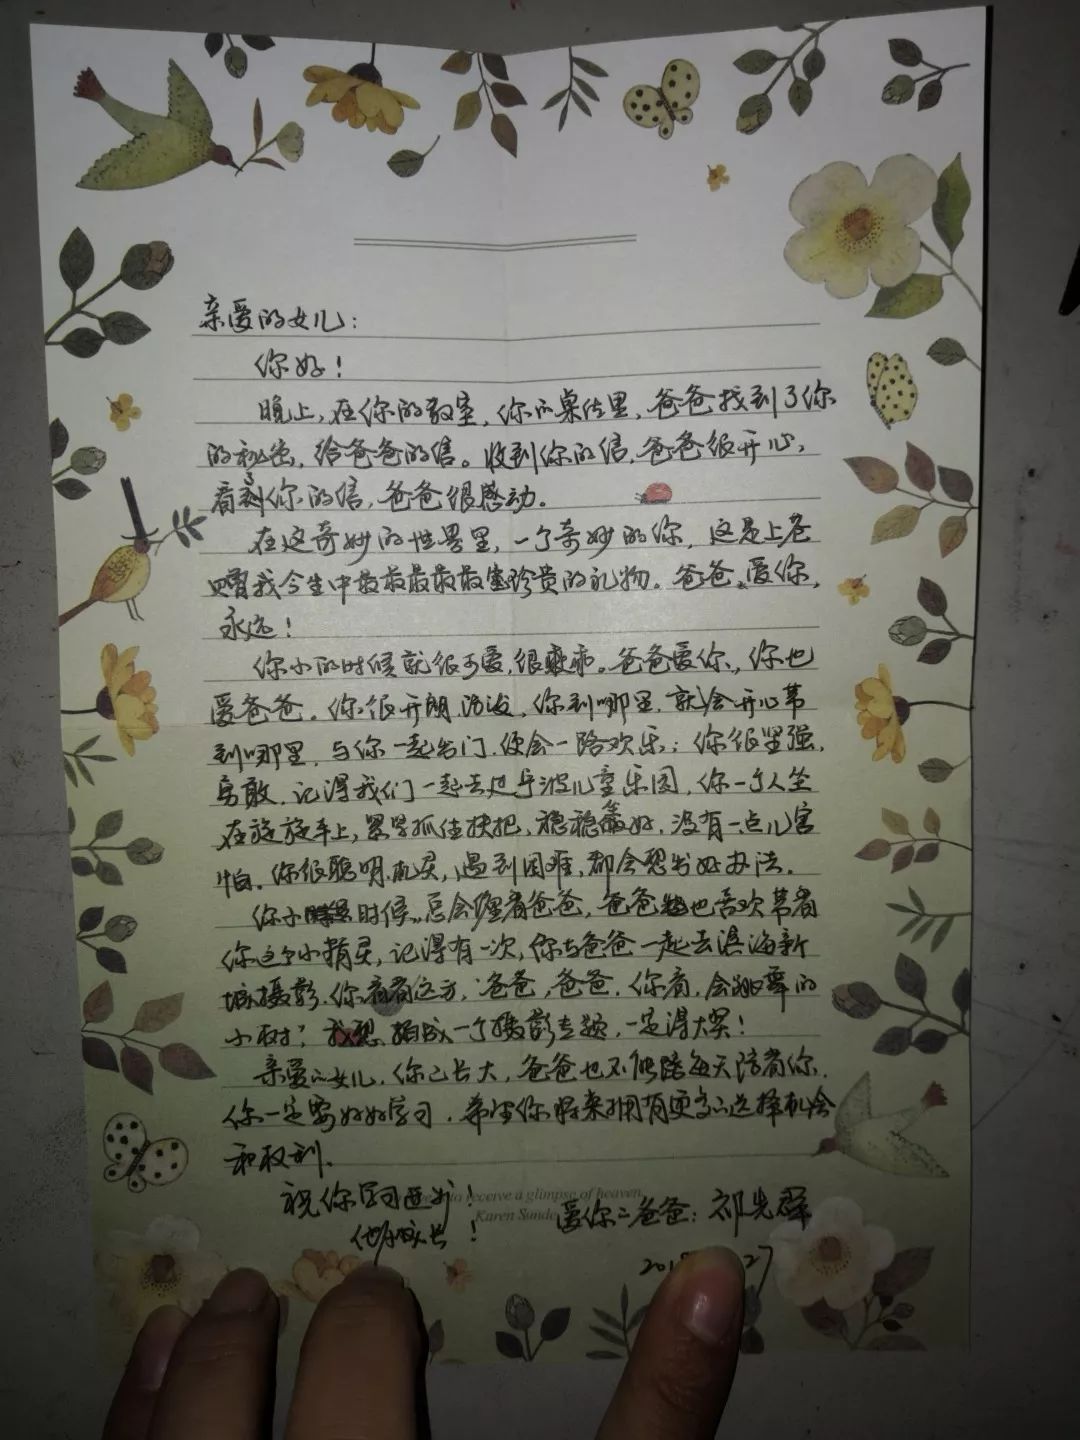 亲爱的女儿：
你好！
晚上，在你的教室，你的桌位里，爸爸找到了你
的秘密，给爸爸的信。收到你的信，爸爸很开心，
看到你的信，爸爸很感动。
在这奇妙的世界里，一个奇妙的你，这是上苍
赠我今生中最最最最最宝珍贵的礼物。爸爸爱你，
永远！
你小的时候就很可爱，很乖。爸爸爱你，你也
爱爸爸。你很开朗活泼，你到哪里，就会开心带
到哪里，与你一起出门，便会一路欢乐；你很坚强，
勇敢，记得我们一起去宁波儿童乐园，你一个人坐
在旋旋车上，紧紧抓住扶把，稳稳坐好，没有一点儿害
怕。你很聪明机灵，遇到困难，都会想出好办法。
你小时候，总会缠着爸爸，爸爸也喜欢带着
你这个小精灵，记得有一次，你与爸爸一起去滨海新
城摄影，你看着远方，“爸爸，爸爸，你看，会跳舞的
小树”，我想拍成一个摄影专题，一定得大奖！
亲爱的女儿，你已长大，爸爸也不能每天陪着你，
你一定要好好学习，希望你将来拥有更多的选择机会
和权利。
祝你学习进步！
receive a glimpse of heaven
Karen Sunde
爱你的爸爸：祁先群
201 27